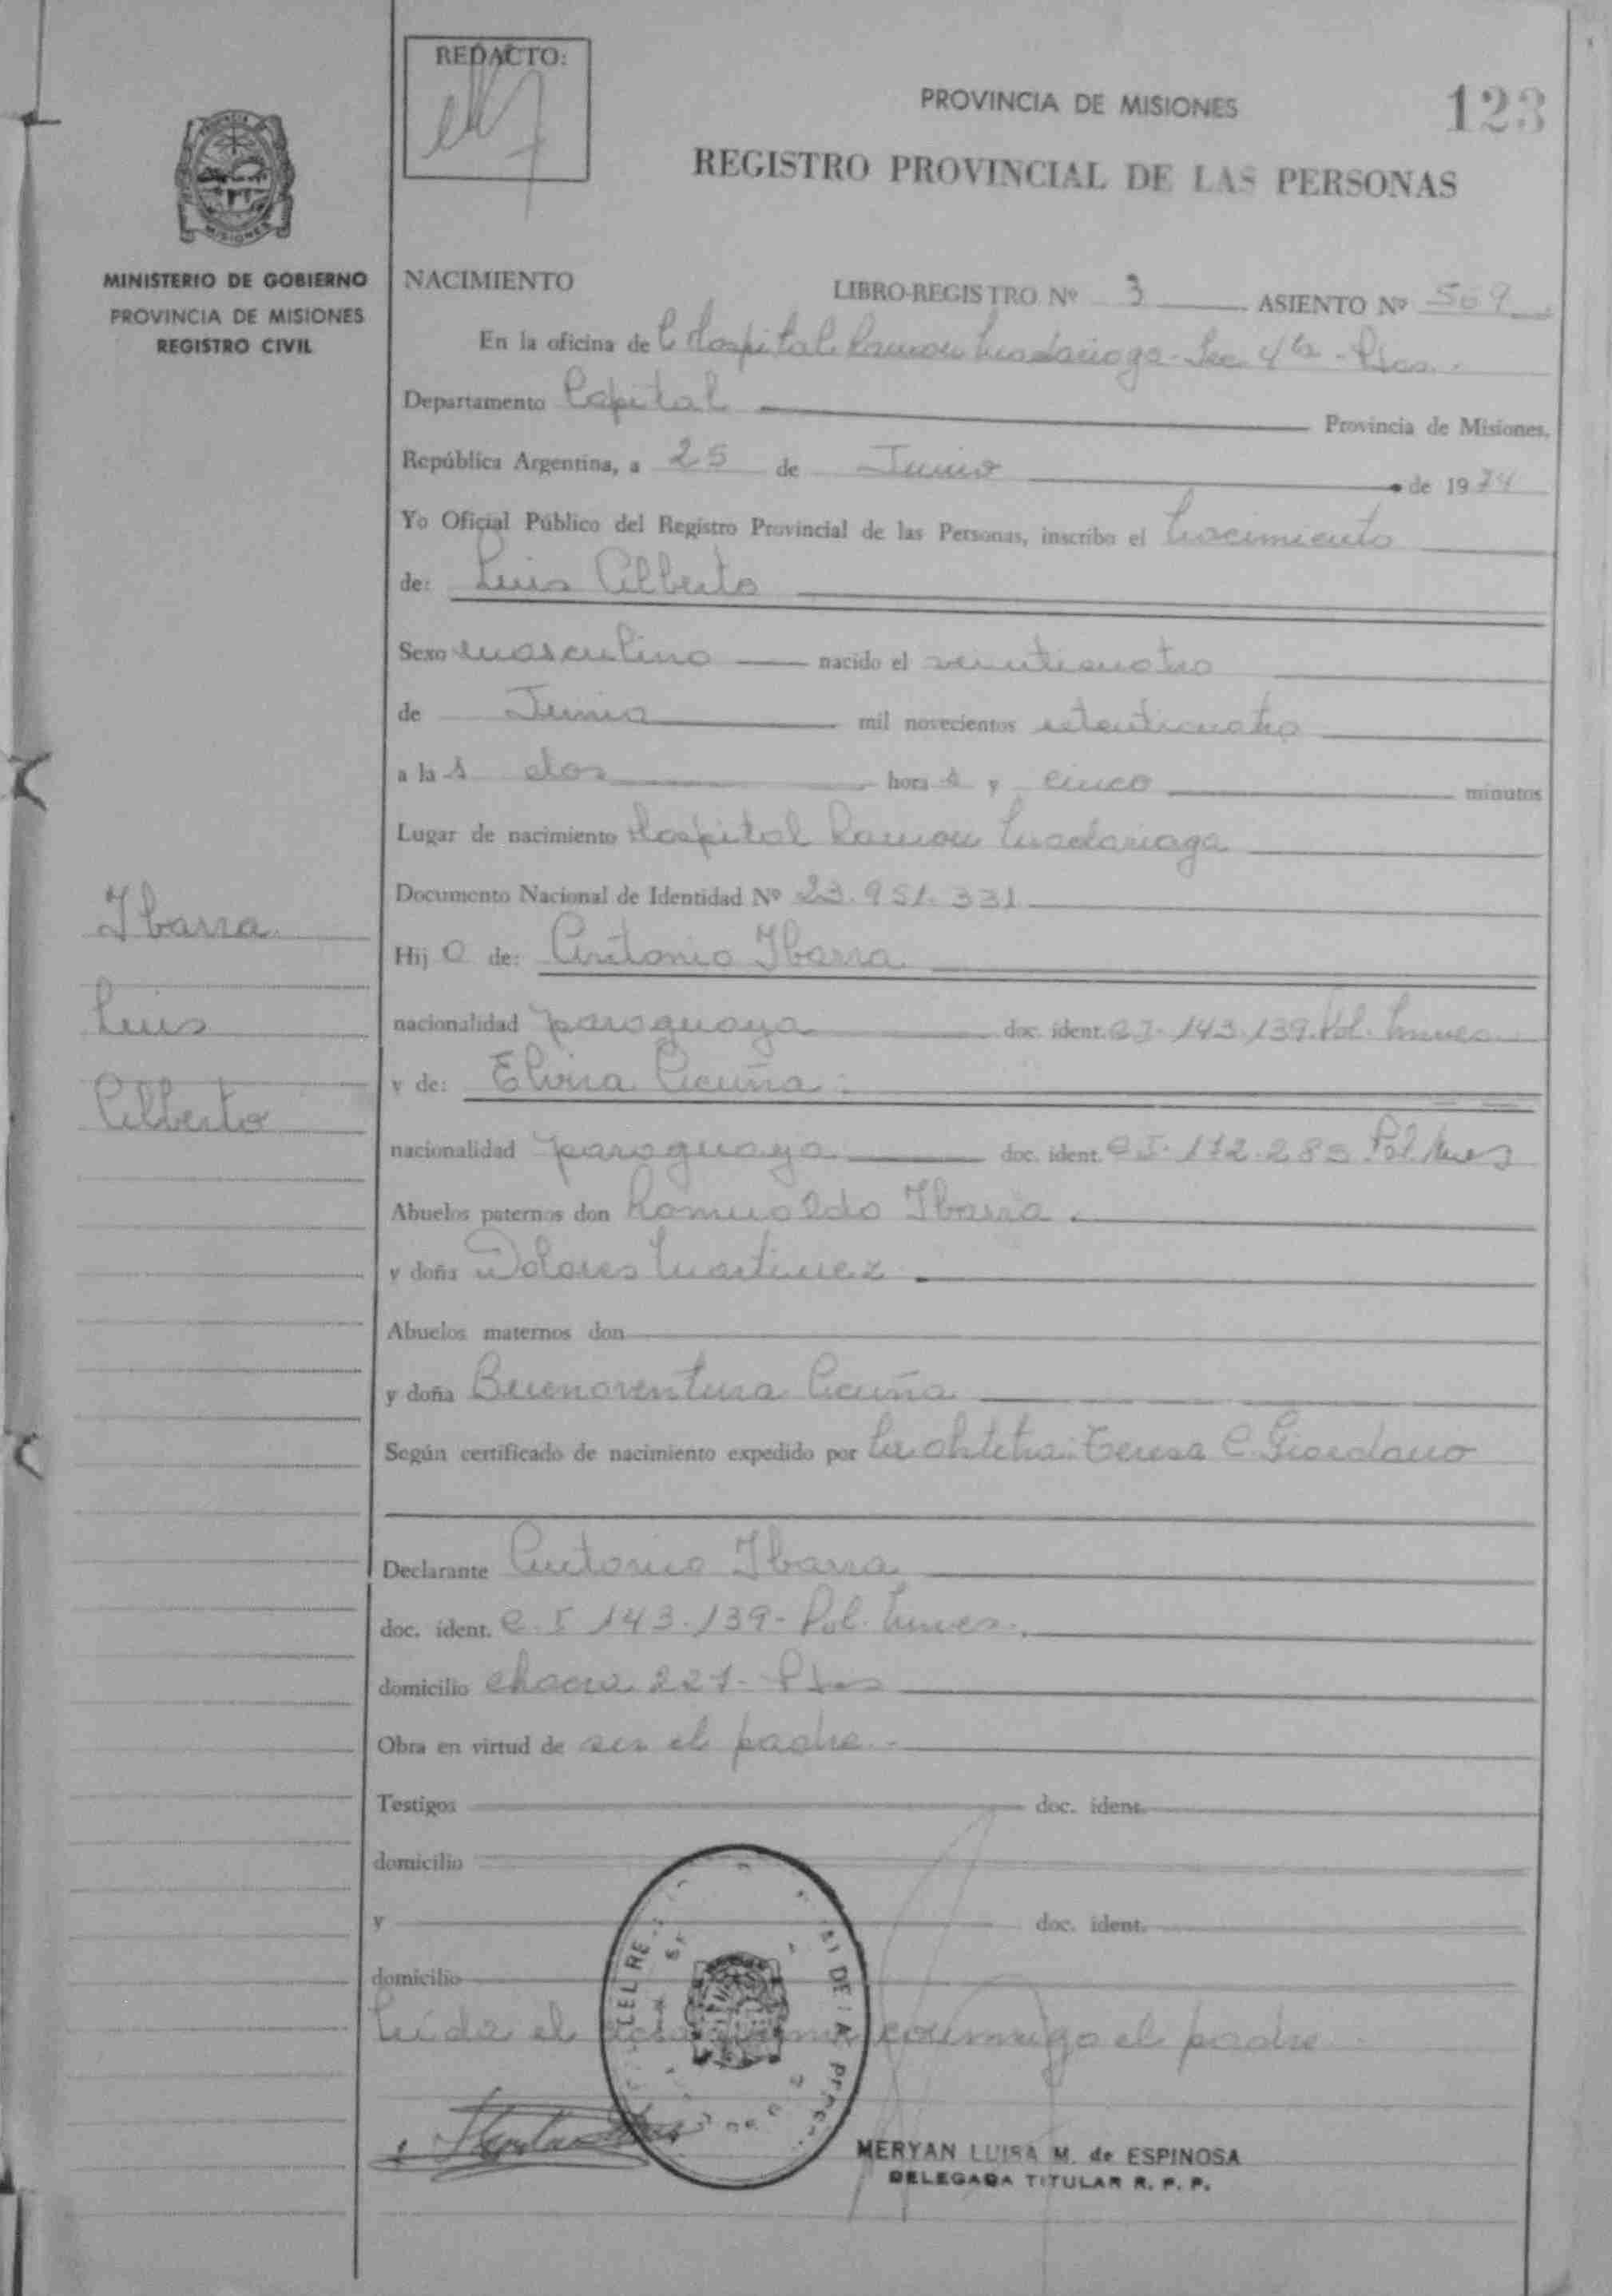 REDACTO:
PROVINCIA DE MISIONES
123
REGISTRO PROVINCIAL DE LAS PERSONAS
MISIONES
MINISTERIO DE GOBIERNO
PROVINCIA DE MISIONES
REGISTRO CIVIL
NACIMIENTO LIBRO-REGISTRO Nº 3 ASIENTO Nº 569
En la oficina de Hospital Ramon Madariaga - Sec 4ta - Pdas.
Departamento Capital Provincia de Misiones,
República Argentina, a 25 de Junio de 1974
Yo Oficial Público del Registro Provincial de las Personas, inscribo el Nacimiento
de: Luis Alberto
Sexo masculino nacido el veinticuatro
de Junio mil novecientos setenticuatro
a las dos horas y cinco minutos
Lugar de nacimiento Hospital Ramon Madariaga
Documento Nacional de Identidad Nº 23.951.331
Hijo de: Antonio Ibarra
nacionalidad paraguaya doc. ident. C.I. 143.139. Pol. Mnes.
y de: Elvira Acuña
nacionalidad paraguaya doc. ident. C.I. 172.285 Pol. Mnes
Abuelos paternos don Romualdo Ibarra.
y doña Dolores Martinez
Abuelos maternos don
y doña Buenaventura Acuña
Según certificado de nacimiento expedido por la obstetra: Teresa C Giordano
Declarante Antonio Ibarra
doc. ident. C.I 143.139 - Pol. Mnes.
domicilio chacra 227 - Pdas
Obra en virtud de ser el padre.
Testigos doc. ident.
domicilio
y doc. ident.
domicilio
Leída el acta firma conmigo el padre
MERYAN LUISA M. de ESPINOSA
DELEGADA TITULAR R. P. P.
Ibarra
Luis
Alberto